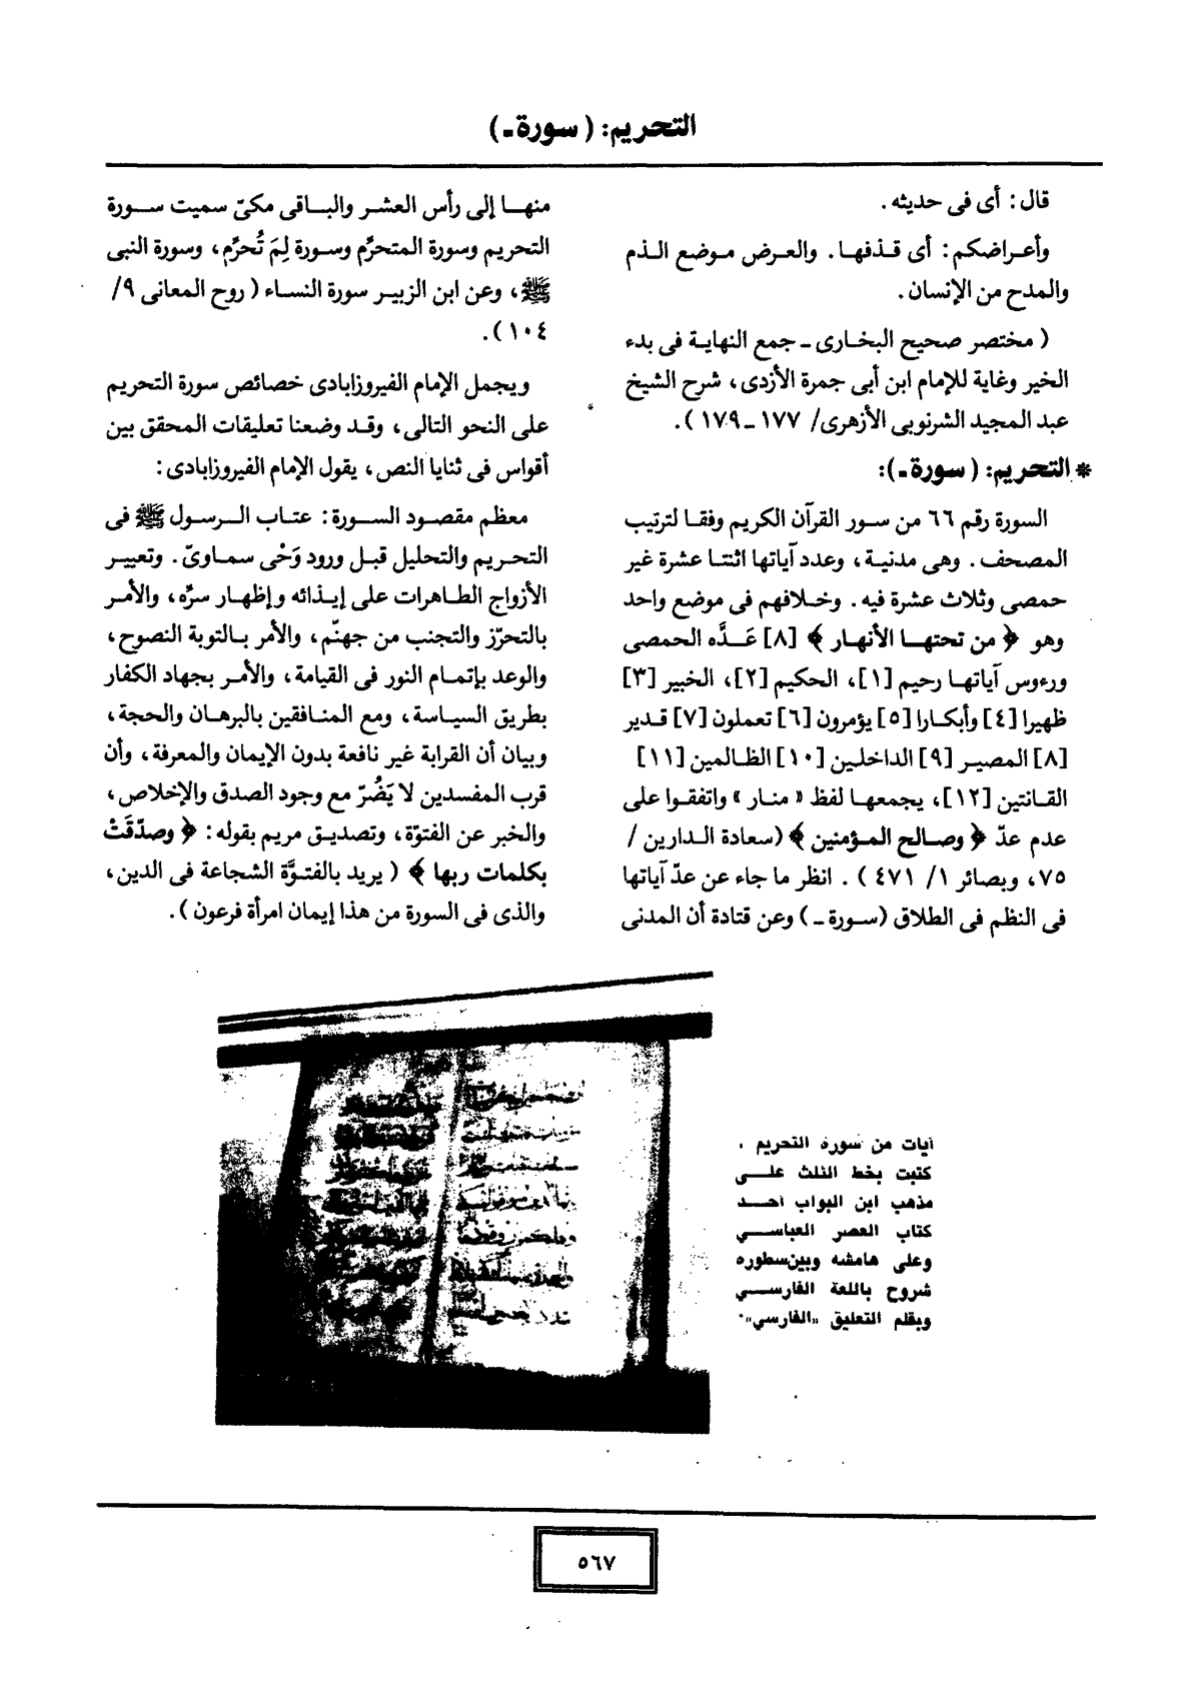 التحريم: ( سورة ـ)
قال: أى فى حديثه .
وأعراضكم: أى قذفها. والعرض موضع الذم
والمدح من الإنسان.
( مختصر صحيح البخارى ـ جمع النهاية فى بدء
الخير وغاية للإمام ابن أبى جمرة الأزدى، شرح الشيخ
عبد المجيد الشرنوبى الأزهرى/ ١٧٧ ـ ١٧٩ ).
* التحريم: ( سورة ـ):
السورة رقم ٦٦ من سور القرآن الكريم وفقا لترتيب
المصحف. وهى مدنية، وعدد آياتها اثنتا عشرة غير
حمصى وثلاث عشرة فيه. وخلافهم فى موضع واحد
وهو ﴿ من تحتها الأنهار ﴾ [٨] عَدَّه الحمصى
ورءوس آياتها رحيم [١]، الحكيم [٢]، الخبير [٣]
ظهيرا [٤] وأبكارا [٥] يؤمرون [٦] تعملون [٧] قدير
[٨] المصير [٩] الداخلين [١٠] الظالمين [١١]
القانتين [١٢]، يجمعها لفظ « منار » واتفقوا على
عدم عدّ ﴿ وصالح المؤمنين ﴾ (سعادة الدارين /
٧٥، وبصائر ١/ ٤٧١ ) . انظر ما جاء عن عدّ آياتها
فى النظم فى الطلاق (سورة ـ) وعن قتادة أن المدنى
منها إلى رأس العشر والباقى مكىّ سميت سورة
التحريم وسورة المتحرَّم وسورة لِمَ تُحرَّم، وسورة النبى
ﷺ، وعن ابن الزبير سورة النساء ( روح المعانى ٩/
١٠٤ ).
ويجمل الإمام الفيروزابادى خصائص سورة التحريم
على النحو التالى، وقد وضعنا تعليقات المحقق بين
أقواس فى ثنايا النص، يقول الإمام الفيروزابادى:
معظم مقصود السورة: عتاب الرسول ﷺ فى
التحريم والتحليل قبل ورود وَحْى سماوىّ. وتعيير
الأزواج الطاهرات على إيذائه وإظهار سرّه، والأمر
بالتحرّز والتجنب من جهنّم، والأمر بالتوبة النصوح،
والوعد بإتمام النور فى القيامة، والأمر بجهاد الكفار
بطريق السياسة، ومع المنافقين بالبرهان والحجة،
وبيان أن القرابة غير نافعة بدون الإيمان والمعرفة، وأن
قرب المفسدين لا يَضُرّ مع وجود الصدق والإخلاص،
والخبر عن الفتوّة، وتصديق مريم بقوله: ﴿ وصدّقَتْ
بكلمات ربها ﴾ ( يريد بالفتوَّة الشجاعة فى الدين،
والذى فى السورة من هذا إيمان امرأة فرعون ).
آيات من سورة التحريم .
كتبت بخط الثلث على
مذهب ابن البواب أحد
كتاب العصر العباسي
وعلى هامشه وبين سطوره
شروح باللغة الفارسي
وبقلم التعليق «الفارسي».
٥٦٧